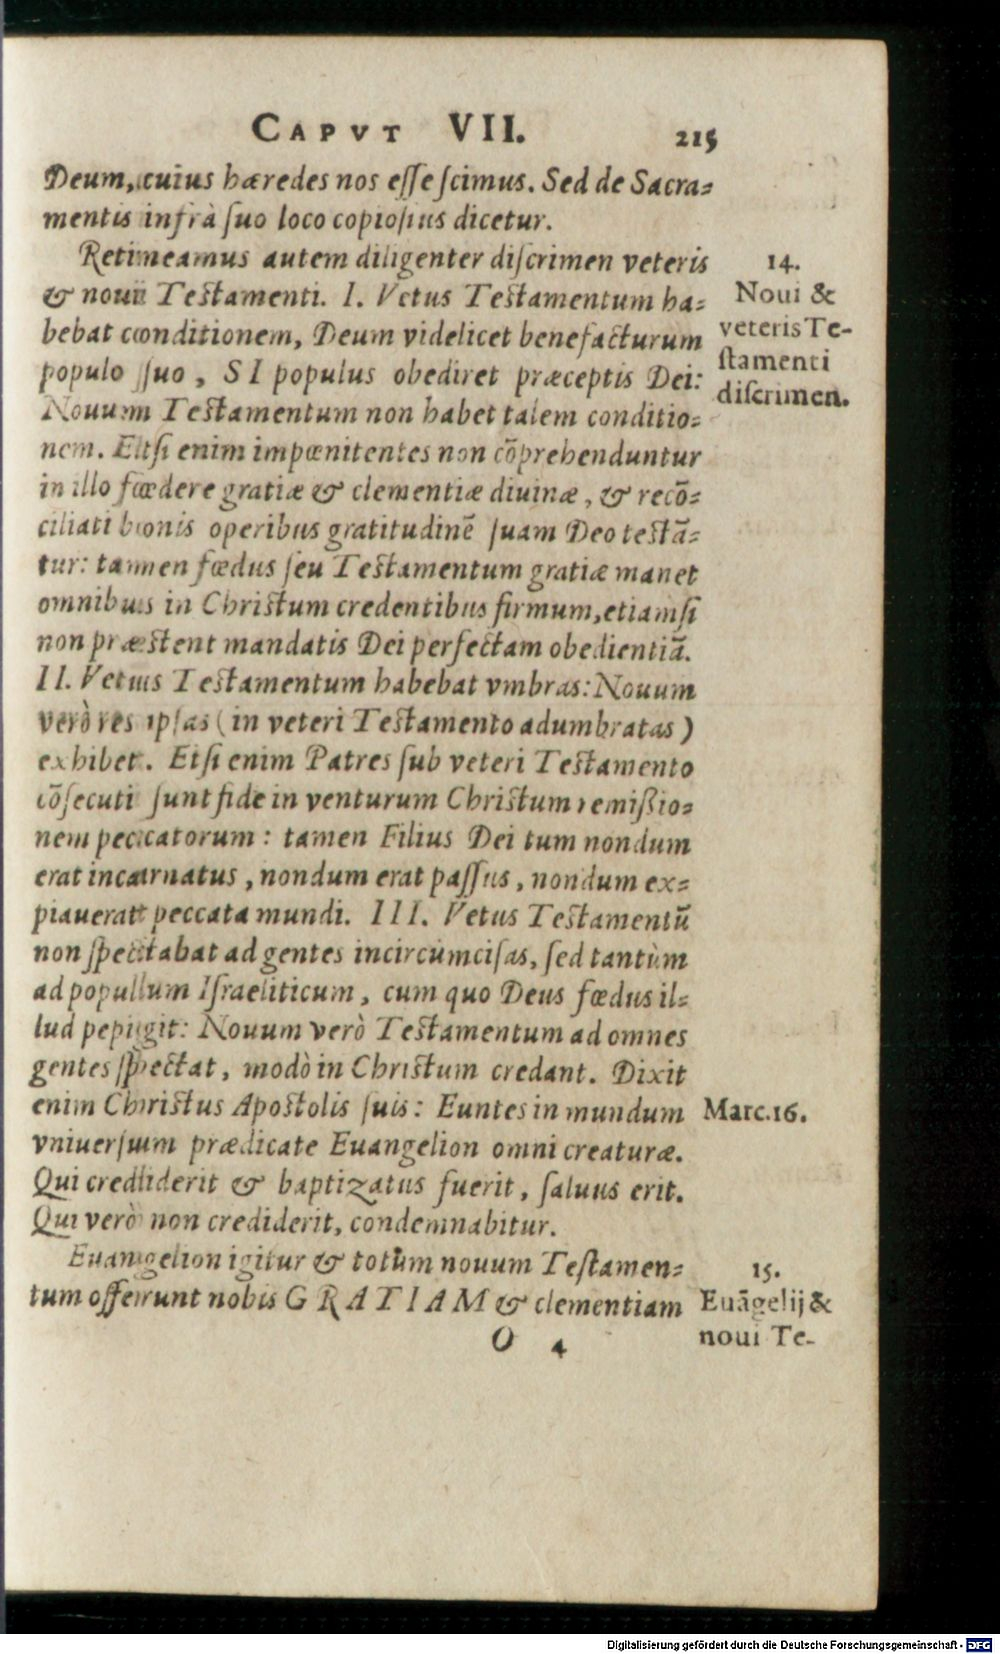 CAPVT VII. 215
Deum, cuius hæredes nos esse scimus. Sed de Sacra=
mentis infrà suo loco copiosius dicetur.
Retineamus autem diligenter discrimen veteris
& noui Testamenti. I. Vetus Testamentum ha=
bebat conditionem, Deum videlicet benefacturum
populo suo, SI populus obediret præceptis Dei:
Nouum Testamentum non habet talem conditio=
nem. Etsi enim impœnitentes non cōprehenduntur
in illo fœdere gratiæ & clementiæ diuinæ, & recō=
ciliati bonis operibus gratitudinē suam Deo testā=
tur: tamen fœdus seu Testamentum gratiæ manet
omnibus in Christum credentibus firmum, etiamsi
non præstent mandatis Dei perfectam obedientiā.
II. Vetus Testamentum habebat vmbras: Nouum
verò res ipsas (in veteri Testamento adumbratas)
exhibet. Etsi enim Patres sub veteri Testamento
cōsecuti sunt fide in venturum Christum remißio=
nem peccatorum: tamen Filius Dei tum nondum
erat incarnatus, nondum erat passus, nondum ex=
piauerat peccata mundi. III. Vetus Testamentū
non spectabat ad gentes incircumcisas, sed tantùm
ad populum Israeliticum, cum quo Deus fœdus il=
lud pepigit: Nouum verò Testamentum ad omnes
gentes spectat, modò in Christum credant. Dixit
enim Christus Apostolis suis: Euntes in mundum
vniuersum prædicate Euangelion omni creaturæ.
Qui crediderit & baptizatus fuerit, saluus erit.
Qui verò non crediderit, condemnabitur.
Euangelion igitur & totum nouum Testamen=
tum offerunt nobis GRATIAM & clementiam
O 4
14.
Noui &
veteris Te-
stamenti
discrimen.
Marc.16.
15.
Euāgelij &
noui Te-
Digitalisierung gefördert durch die Deutsche Forschungsgemeinschaft - DFG